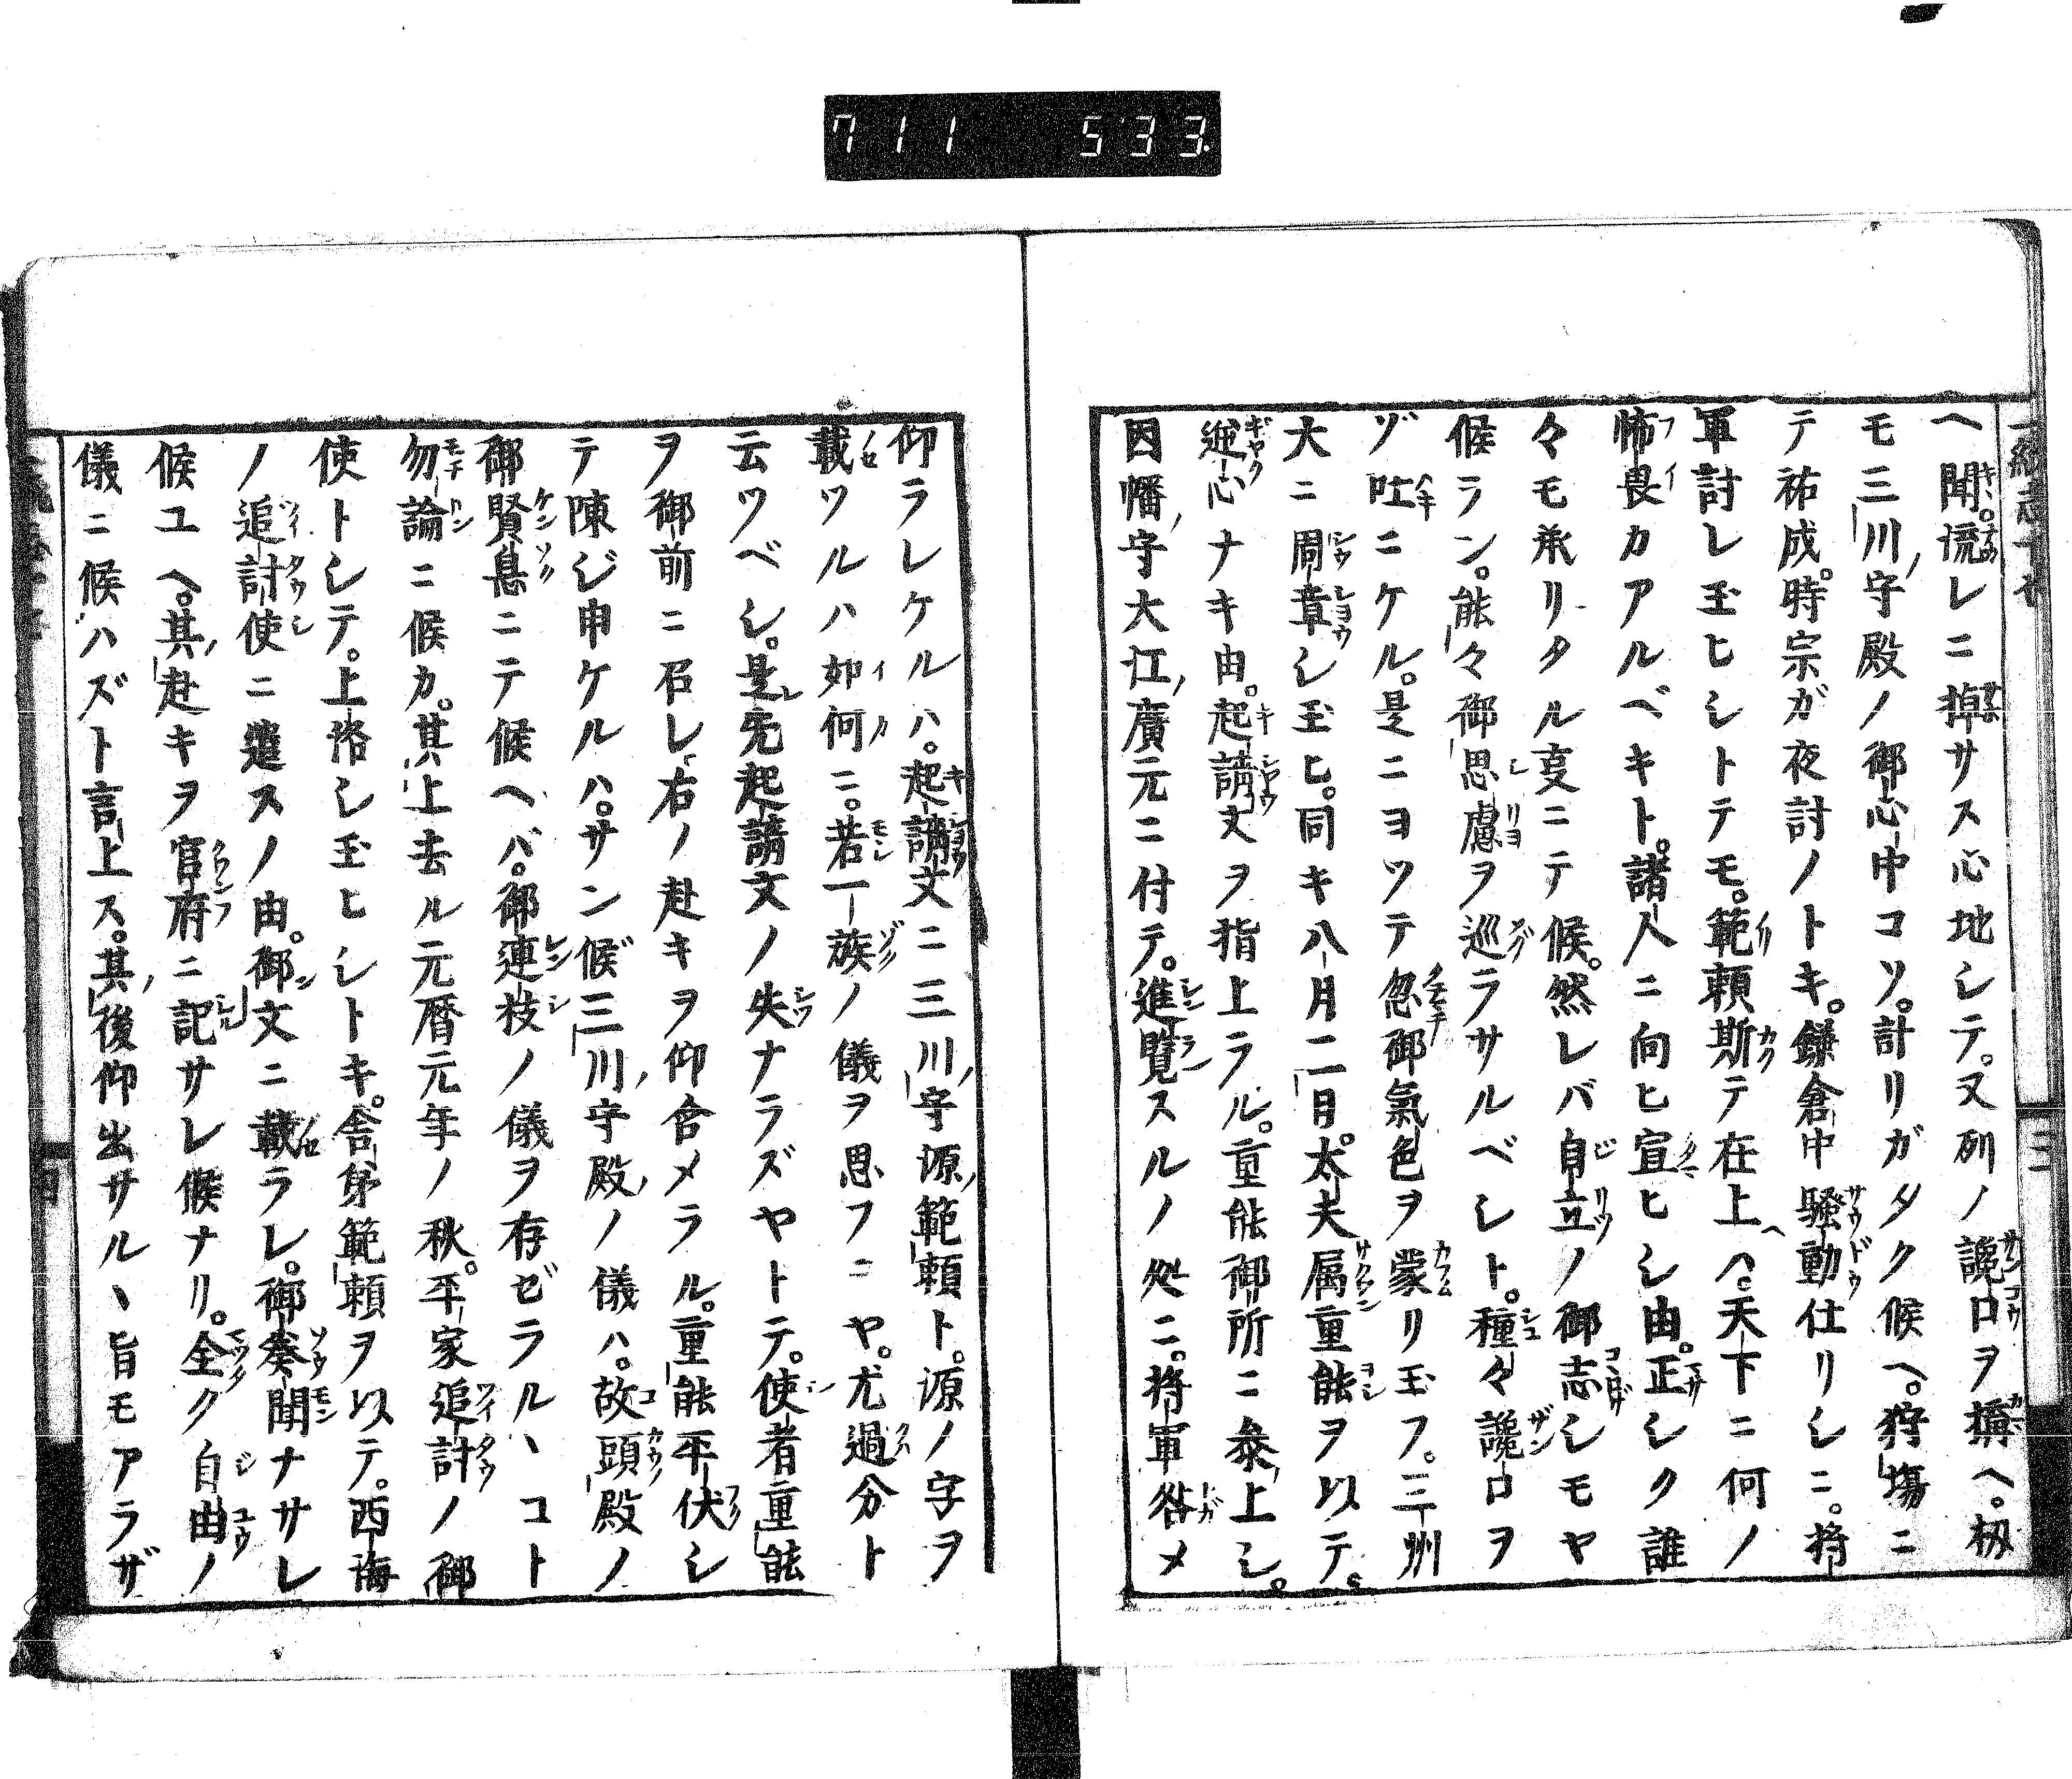 711 533.
ヘ聞。慌レニ掉サス心地シテ。又列ノ讒口ヲ構ヘ。扨
モ三川ノ守殿ノ御心中コソ。計リガタク候ヘ。狩場ニ
テ祐成。時宗ガ夜討ノトキ。鎌倉中騒動仕リシニ。将
軍討レ玉ヒシトテモ。範頼斯テ在上ヘハ。天下ニ何ノ
怖畏カアルベキト。諸人ニ向ヒ宣ヒシ由。正シク誰
々モ承リタル叓ニテ候。然レバ自立ノ御志シモヤ
候ラン。能々御思慮ヲ巡ラサルベシト。種々讒口ヲ
ゾ吐ニケル。是ニヨツテ忽御氣色ヲ蒙リ玉フ。三州
大ニ周章シ玉ヒ。同キ八月二日。太夫属重能ヲ以テ。
逆心ナキ由。起請文ヲ指上ラル。重能御所ニ参上シ。
因幡ノ守大江ノ廣元ニ付テ。進覧スルノ処ニ。将軍咎メ
仰ラレケルハ。起請文ニ三川ノ守源ノ範頼ト。源ノ字ヲ
載ツルハ如何ニ。若一族ノ儀ヲ思フニヤ。尤過分ト
云ツベシ。是レ先起請文ノ失ナラズヤトテ。使者重能
ヲ御前ニ召レ、右ノ赴キヲ仰含メラル。重能平伏シ
テ陳ジ申ケルハ。サン候三川ノ守殿ノ儀ハ。故頭殿ノ
御賢息ニテ候ヘバ。御連枝ノ儀ヲ存ゼラルヽコト
勿論ニ候カ。其上去ル元暦元年ノ秋。平家追討ノ御
使トシテ。上洛シ玉ヒシトキ。舎弟範頼ヲ以テ。西海
ノ追討使ニ遣スノ由。御文ニ載ラレ。御奏聞ナサレ
候ユヘ。其ノ赴キヲ官府ニ記サレ候ナリ。全ク自由ノ
儀ニ候ハズト言上ス。其ノ後仰出サルヽ旨モアラザ